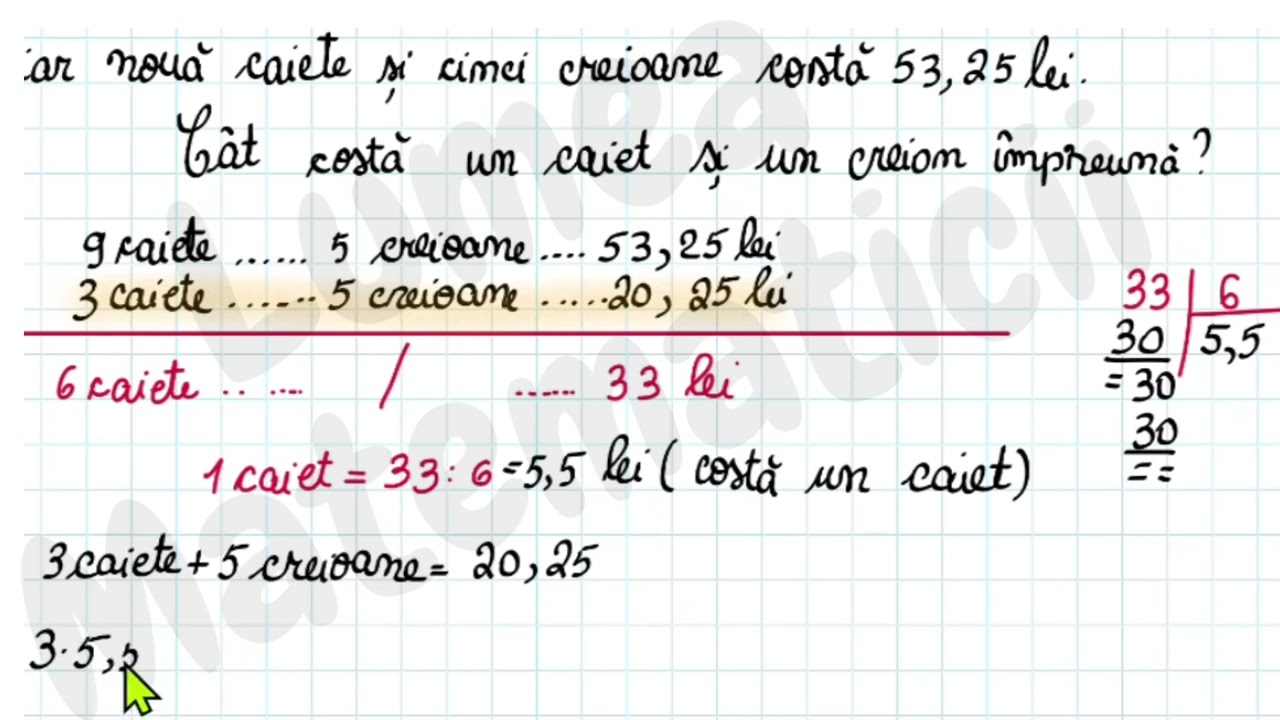 iar nouă caiete și cinci creioane costă 53,25 lei.
Cât costă un caiet și un creion împreună?
9 caiete ...... 5 creioane .... 53,25 lei
3 caiete ....... 5 creioane ..... 20,25 lei
6 caiete .. .... / ...... 33 lei
1 caiet = 33 : 6 = 5,5 lei ( costă un caiet)
3 caiete + 5 creioane = 20,25
3·5,5
33 | 6
30 | 5,5
= 30
30
= =
Lumea
Matematicii